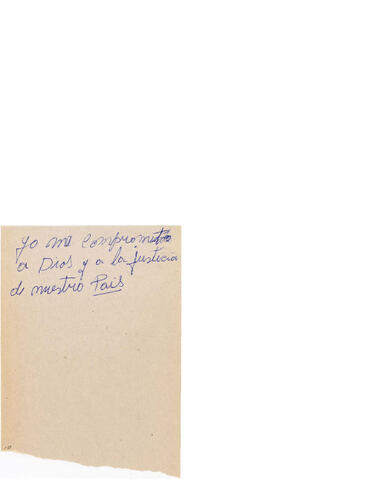 Yo me comprometo
a Dios y a la justicia
de nuestro Pais